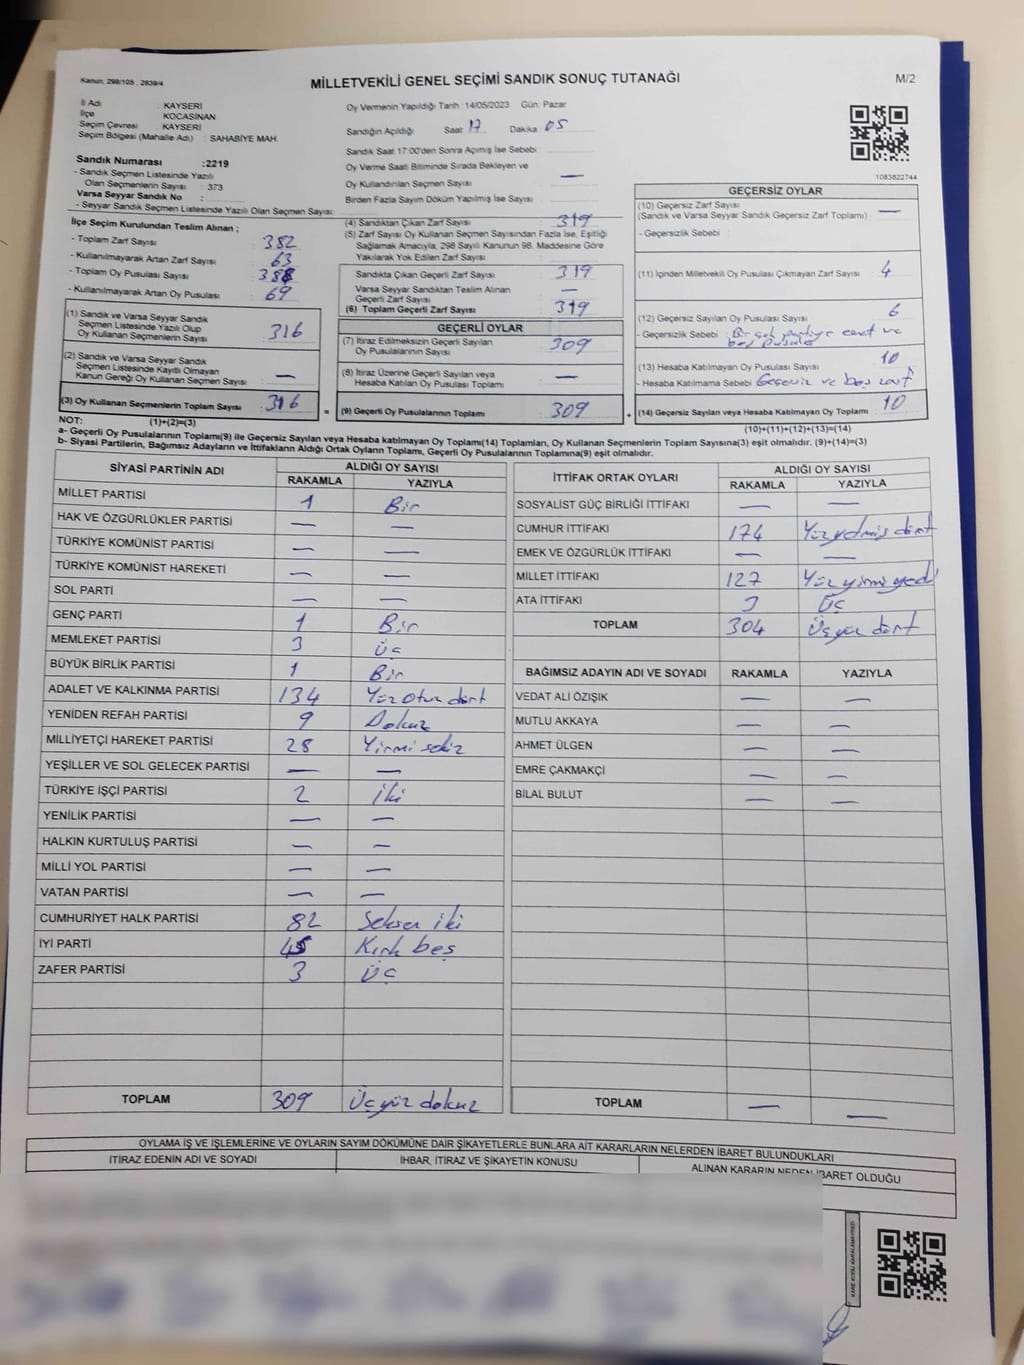 Kanun: 298/105 , 2839/4
MİLLETVEKİLİ GENEL SEÇİMİ SANDIK SONUÇ TUTANAĞI
M/2
İl Adı : KAYSERİ
İlçe KOCASİNAN
Seçim Çevresi : KAYSERİ
Seçim Bölgesi (Mahalle Adı) : SAHABİYE MAH.
Sandık Numarası :2219
- Sandık Seçmen Listesinde Yazılı
Olan Seçmenlerin Sayısı : 373
Varsa Seyyar Sandık No :
- Seyyar Sandık Seçmen Listesinde Yazılı Olan Seçmen Sayısı:
Oy Vermenin Yapıldığı Tarih :14/05/2023 Gün: Pazar
Sandığın Açıldığı Saat: 17 Dakika: 05
Sandık Saat 17:00'den Sonra Açılmış İse Sebebi :
Oy Verme Saati Bitiminde Sırada Bekleyen ve
Oy Kullandırılan Seçmen Sayısı : —
Birden Fazla Sayım Döküm Yapılmış İse Sayısı :
1083822744
İlçe Seçim Kurulundan Teslim Alınan ;
- Toplam Zarf Sayısı : 382
- Kullanılmayarak Artan Zarf Sayısı : 63
- Toplam Oy Pusulası Sayısı :
- Kullanılmayarak Artan Oy Pusulası : 69
(1) Sandık ve Varsa Seyyar Sandık
Seçmen Listesinde Yazılı Olup
Oy Kullanan Seçmenlerin Sayısı : 316
(2) Sandık ve Varsa Seyyar Sandık
Seçmen Listesinde Kayıtlı Olmayan
Kanun Gereği Oy Kullanan Seçmen Sayısı : —
(3) Oy Kullanan Seçmenlerin Toplam Sayısı : 316
(4) Sandıktan Çıkan Zarf Sayısı : 319
(5) Zarf Sayısı Oy Kullanan Seçmen Sayısından Fazla İse, Eşitliği
Sağlamak Amacıyla, 298 Sayılı Kanunun 98. Maddesine Göre
Yakılarak Yok Edilen Zarf Sayısı :
Sandıkta Çıkan Geçerli Zarf Sayısı : 319
Varsa Seyyar Sandıktan Teslim Alınan
Geçerli Zarf Sayısı : —
(6) Toplam Geçerli Zarf Sayısı : 319
GEÇERLİ OYLAR
(7) İtiraz Edilmeksizin Geçerli Sayılan
Oy Pusulalarının Sayısı : 309
(8) İtiraz Üzerine Geçerli Sayılan veya
Hesaba Katılan Oy Pusulası Toplamı : —
= (9) Geçerli Oy Pusulalarının Toplamı : 309
GEÇERSİZ OYLAR
(10) Geçersiz Zarf Sayısı
(Sandık ve Varsa Seyyar Sandık Geçersiz Zarf Toplamı) : —
- Geçersizlik Sebebi :
(11) İçinden Milletvekili Oy Pusulası Çıkmayan Zarf Sayısı : 4
(12) Geçersiz Sayılan Oy Pusulası Sayısı : 6
- Geçersizlik Sebebi : Bir çok partiye evet ve
boş pusula
(13) Hesaba Katılmayan Oy Pusulası Sayısı : 10
- Hesaba Katılmama Sebebi : Geçersiz ve boş zarf
+ (14) Geçersiz Sayılan veya Hesaba Katılmayan Oy Toplamı : 10
NOT: (1)+(2)=(3)
(10)+(11)+(12)+(13)=(14)
a- Geçerli Oy Pusulalarının Toplamı(9) ile Geçersiz Sayılan veya Hesaba katılmayan Oy Toplamı(14) Toplamları, Oy Kullanan Seçmenlerin Toplam Sayısına(3) eşit olmalıdır. (9)+(14)=(3)
b- Siyasi Partilerin, Bağımsız Adayların ve İttifakların Aldığı Ortak Oyların Toplamı, Geçerli Oy Pusulalarının Toplamına(9) eşit olmalıdır.
SİYASİ PARTİNİN ADI ALDIĞI OY SAYISI
RAKAMLA YAZIYLA
MİLLET PARTİSİ 1 Bir
HAK VE ÖZGÜRLÜKLER PARTİSİ — —
TÜRKİYE KOMÜNİST PARTİSİ — —
TÜRKİYE KOMÜNİST HAREKETİ — —
SOL PARTİ — —
GENÇ PARTİ 1 Bir
MEMLEKET PARTİSİ 3 üç
BÜYÜK BİRLİK PARTİSİ 1 Bir
ADALET VE KALKINMA PARTİSİ 134 Yüz otuz dört
YENİDEN REFAH PARTİSİ 9 Dokuz
MİLLİYETÇİ HAREKET PARTİSİ 28 Yirmi sekiz
YEŞİLLER VE SOL GELECEK PARTİSİ — —
TÜRKİYE İŞÇİ PARTİSİ 2 iki
YENİLİK PARTİSİ — —
HALKIN KURTULUŞ PARTİSİ — —
MİLLİ YOL PARTİSİ — —
VATAN PARTİSİ — —
CUMHURİYET HALK PARTİSİ 82 Seksen iki
İYİ PARTİ 45 Kırk beş
ZAFER PARTİSİ 3 üç
TOPLAM 309 Üçyüz dokuz
İTTİFAK ORTAK OYLARI ALDIĞI OY SAYISI
RAKAMLA YAZIYLA
SOSYALİST GÜÇ BİRLİĞİ İTTİFAKI — —
CUMHUR İTTİFAKI 174 Yüz yetmiş dört
EMEK VE ÖZGÜRLÜK İTTİFAKI — —
MİLLET İTTİFAKI 127 Yüz yirmi yedi
ATA İTTİFAKI 3 üç
TOPLAM 304 Üçyüz dört
BAĞIMSIZ ADAYIN ADI VE SOYADI RAKAMLA YAZIYLA
VEDAT ALİ ÖZIŞIK — —
MUTLU AKKAYA — —
AHMET ÜLGEN — —
EMRE ÇAKMAKÇİ — —
BİLAL BULUT — —
TOPLAM — —
OYLAMA İŞ VE İŞLEMLERİNE VE OYLARIN SAYIM DÖKÜMÜNE DAİR ŞİKAYETLERLE BUNLARA AİT KARARLARIN NELERDEN İBARET BULUNDUKLARI
İTİRAZ EDENİN ADI VE SOYADI İHBAR, İTİRAZ VE ŞİKAYETİN KONUSU ALINAN KARARIN NEDEN İBARET OLDUĞU